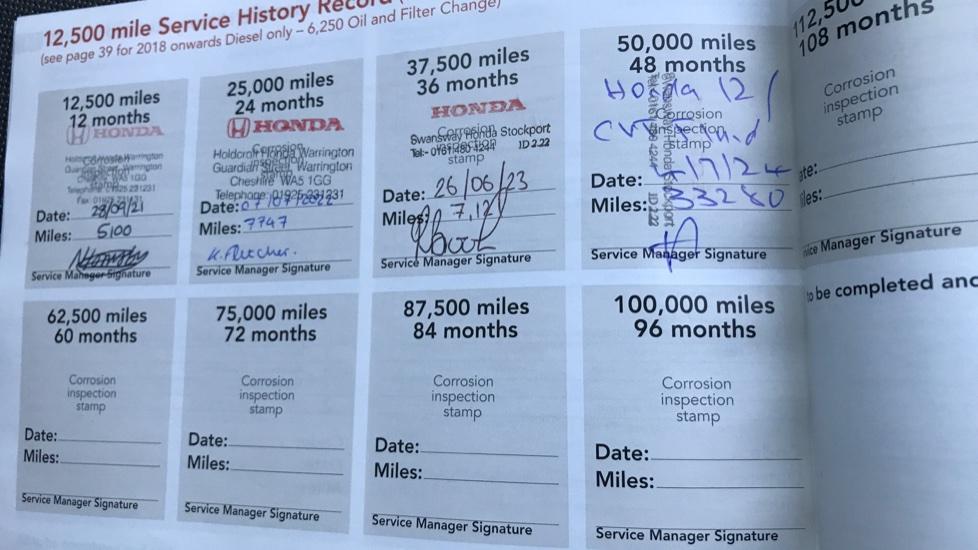 12,500 mile Service History Record
(see page 39 for 2018 onwards Diesel only – 6,250 Oil and Filter Change)
12,500 miles
12 months
HONDA
Corrosion
Warrington
stamp
Date: 28/09/21
Miles: 5100
Service Manager Signature
25,000 miles
24 months
HONDA
Corrosion
Holdcroft Honda Warrington
inspection
Guardian Street, Warrington
stamp
Cheshire WA5 1GG
Telephone: 01925 231231
Date:
Miles: 7747
K. Fletcher.
Service Manager Signature
37,500 miles
36 months
HONDA
Corrosion
Swansway Honda Stockport
inspection
Tel:- 0161 480 4244 ID 2.22
stamp
Date: 26/06/23
Miles:
Service Manager Signature
50,000 miles
48 months
Honda 12/
Corrosion
CVT
inspection
stamp
Date:
Miles: 33280
Service Manager Signature
112,500
108 months
Corrosion
inspection
stamp
Manager Signature
be completed and
62,500 miles
60 months
Corrosion
inspection
stamp
Date:
Miles:
Service Manager Signature
75,000 miles
72 months
Corrosion
inspection
stamp
Date:
Miles:
Service Manager Signature
87,500 miles
84 months
Corrosion
inspection
stamp
Date:
Miles:
Service Manager Signature
100,000 miles
96 months
Corrosion
inspection
stamp
Date:
Miles:
Service Manager Signature